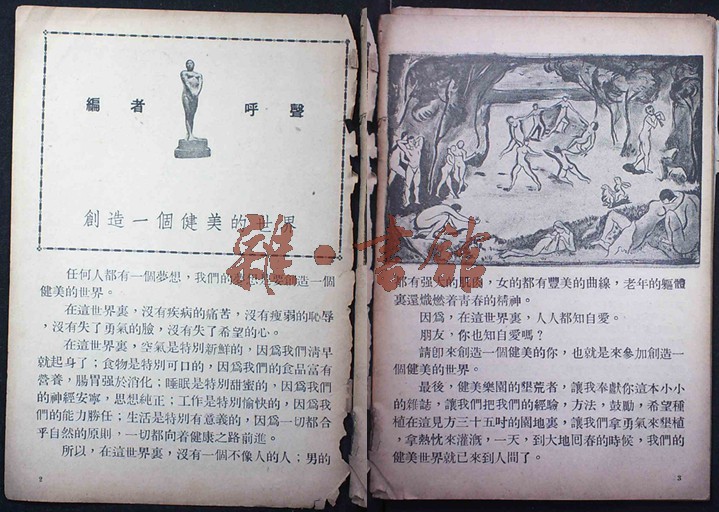 編者 呼聲
創造一個健美的世界
任何人都有一個夢想，我們的夢想是要創造一個
健美的世界。
在這世界裏，沒有疾病的痛苦，沒有瘦弱的恥辱
，沒有失了勇氣的臉，沒有失了希望的心。
在這世界裏，空氣是特別新鮮的，因爲我們清早
就起身了；食物是特別可口的，因爲我們的食品富有
營養，腸胃强於消化；睡眠是特別甜蜜的，因爲我們
的神經安寧，思想純正；工作是特別愉快的，因爲我
們的能力勝任；生活是特別有意義的，因爲一切都合
乎自然的原則，一切都向着健康之路前進。
所以，在這世界裏，沒有一個不像人的人；男的
2
都有强大的肌肉，女的都有豐美的曲線，老年的軀體
裏還熾燃着青春的精神。
因爲，在這世界裏，人人都知自愛。
朋友，你也知自愛嗎？
請卽來創造一個健美的你，也就是來參加創造一
個健美的世界。
最後，健美樂園的墾荒者，讓我奉獻你這本小小
的雜誌，讓我們把我們的經驗，方法，鼓勵，希望種
植在這見方三十五吋的園地裏，讓我們拿勇氣來墾植
，拿熱忱來灌漑，一天，到大地囘春的時候，我們的
健美世界就已來到人間了。
3
雜·書館